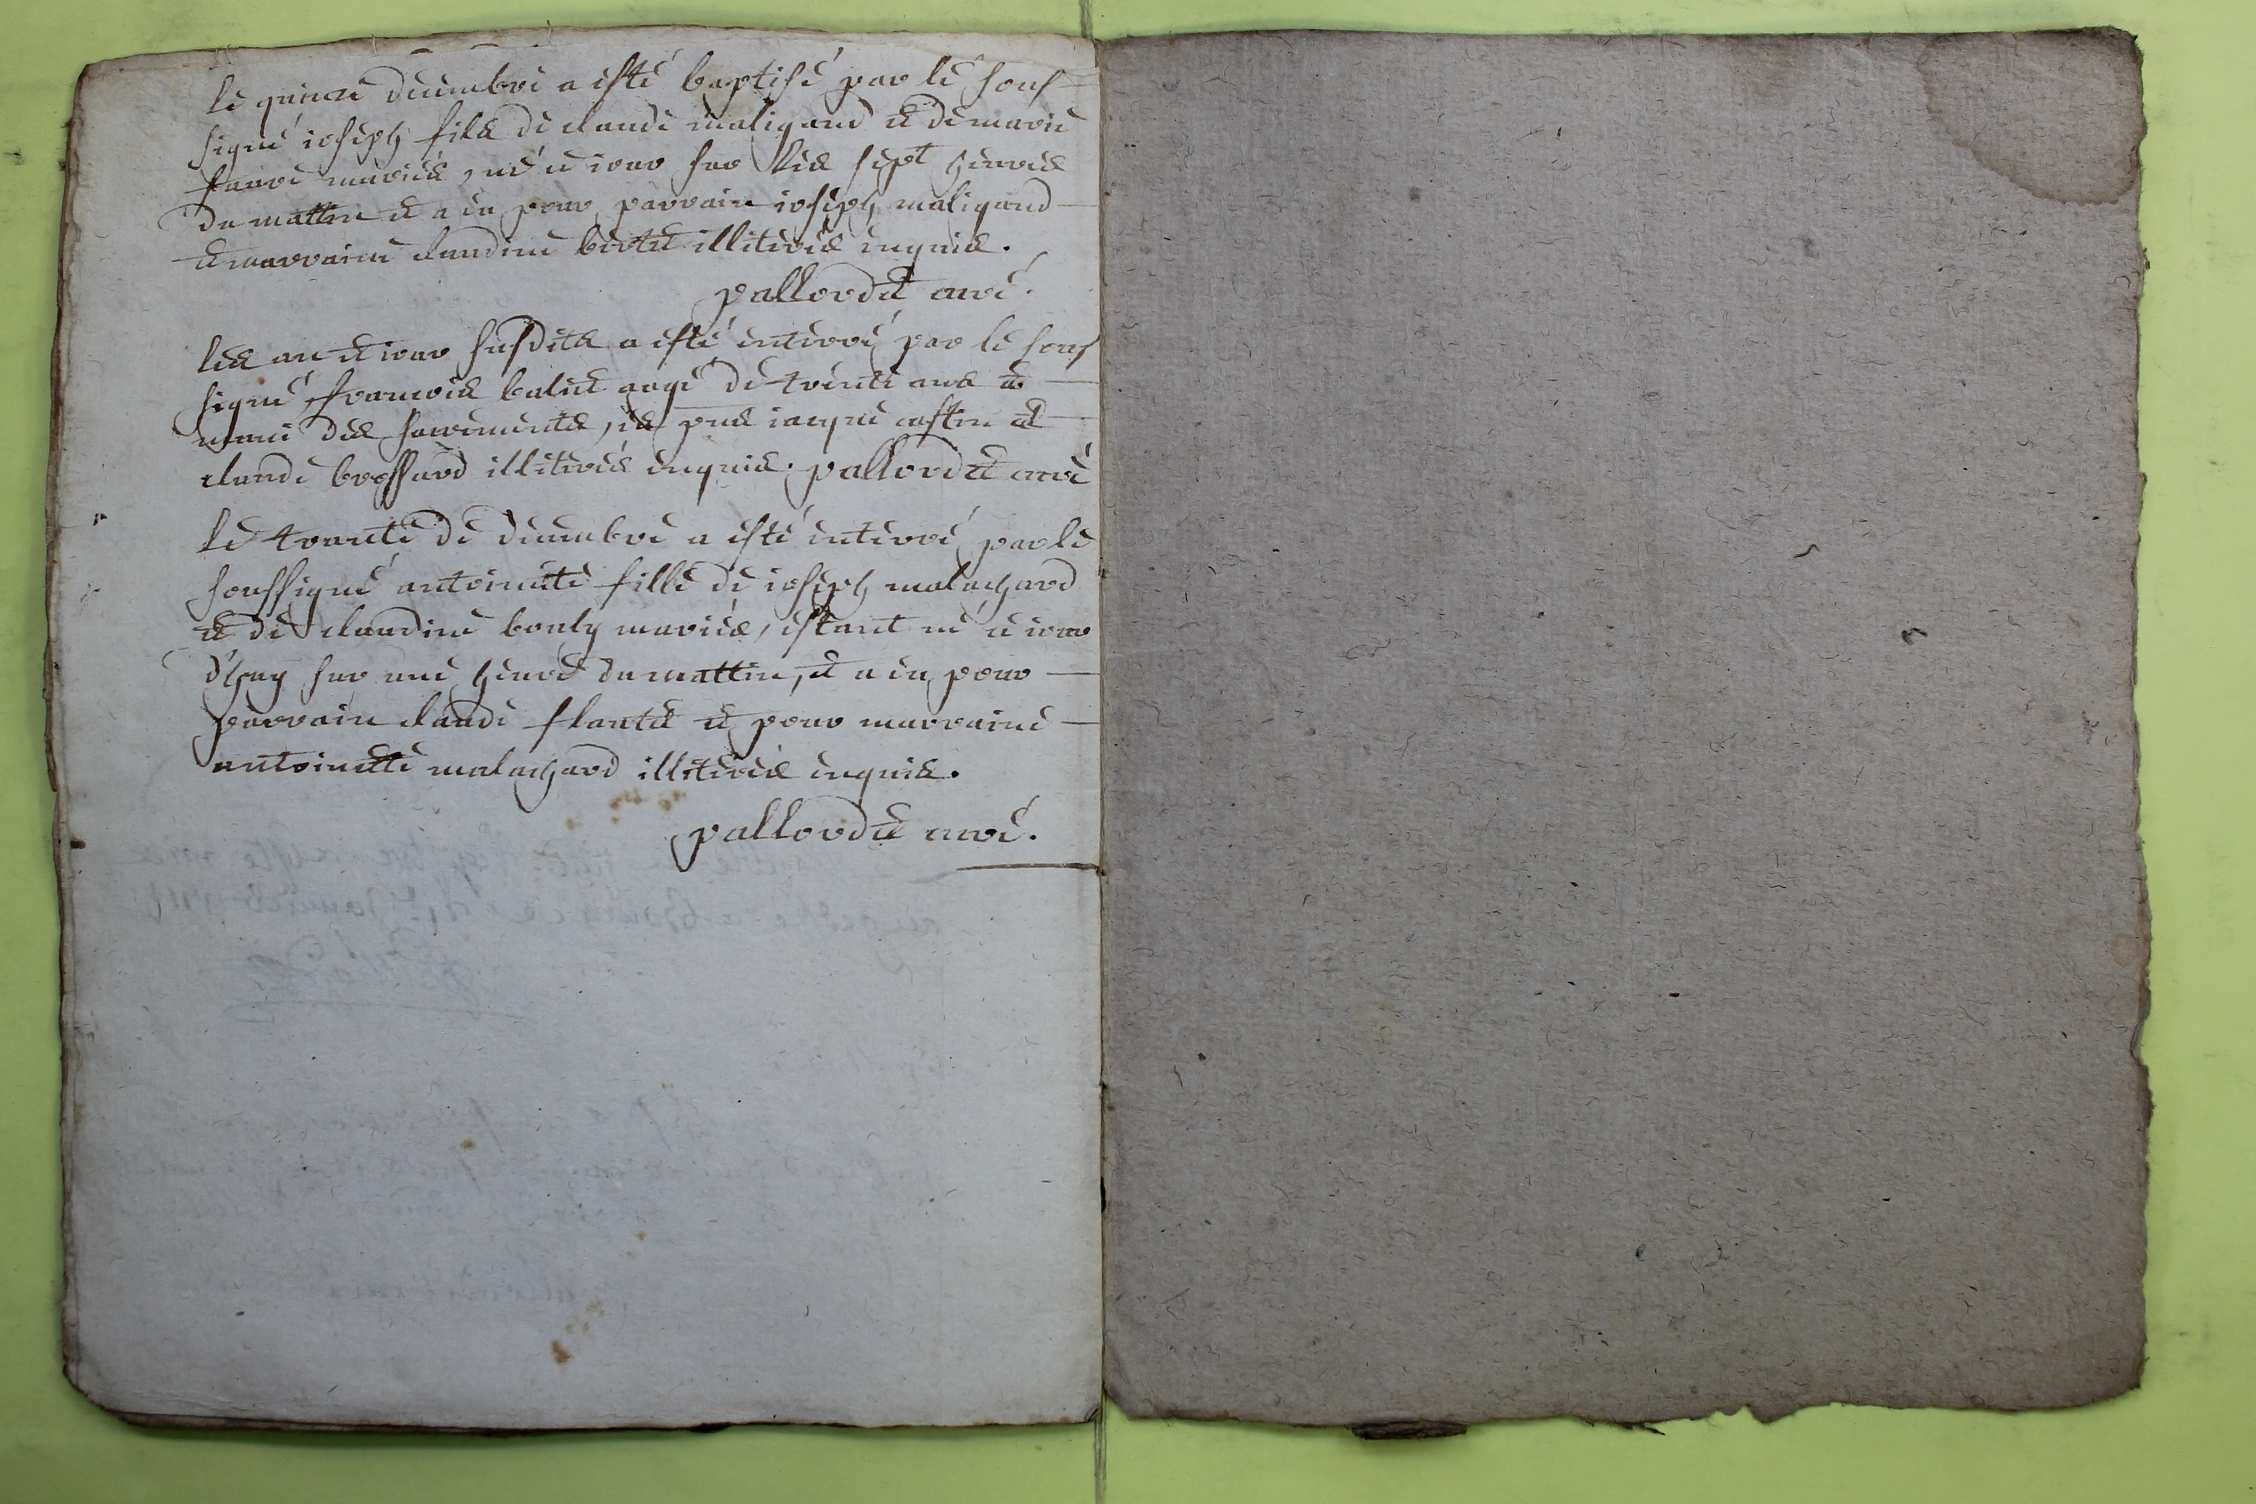 le quinze décembre a esté baptisé par le sous
signé ioseph fils de claude maligand et de marie
faure mariés, né ce iour sur les sept heures
du mattin et a eu pour parrain ioseph maligand
et marraine claudine bertet illiterés enquis.
pallordet curé.
les an et iour susdits a esté enterré par le sous
signé, francois balut aagé de trente ans et
muni des sacrements, és pnts iacque costin et
claude brossard illiterés enquis. pallordet curé
le trante de décembre a esté enterré par le
soussigné antoinette fille de ioseph malachard
et de claudine bouly mariés, estant né ce iour
d'huy sur une heure du mattin, et a eu pour
parrain claude flantet et pour marraine
antoinette malachard illiterés enquis.
pallordet curé.